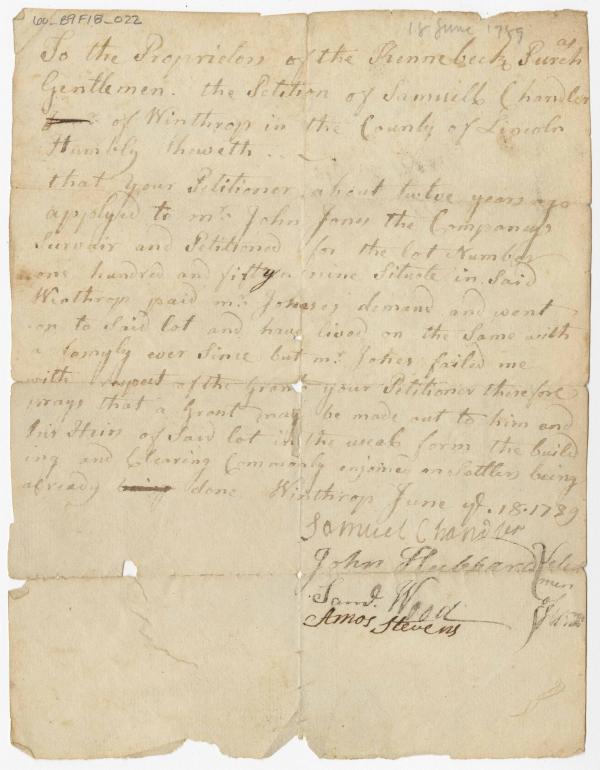 60_E9F18_022
18 June 1789
To the Propriders of the Kennebeck Purchas
Gentlemen. the Petition of Samuell Chandler
of Winthrop in the County of Lincoln
Humbly Sheweth
that your Petitioner about twelve years ago
applyed to mr. John Jones the Companys
Survair and Petitioned for the lot Number
one hundred and fifty nine Situate in Said
Winthrop paid mr. Joneses demand and went
on to Said lot and have lived on the Same with
a famyly ever Since but mr. Jones failed me
with respect of the Grant your Petitioner therefore
prays that a Grant may be made out to him and
his Heirs of Said lot in the useal form the build
ing and Clearing Commonly enjoined on Settlers being
already done Winthrop June ye. 18. 1789
Samuel Chandler
John Hubbard Selec
men
Saml. Wood of
Amos Stevens